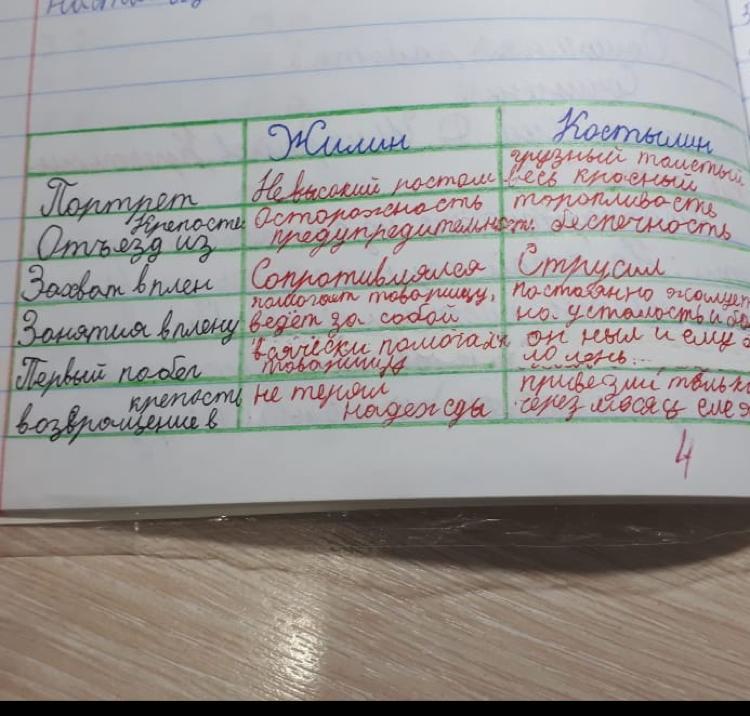 Жилин Костылин
Портрет Невысокий ростом грузный толстый
весь красный
Крепости
Отъезд из Осторожность торопливость
предупредительност. беспечность
Захват в плен Сопротивлялся Струсил
Занятия в плену помогает товарищу, постоянно
ведёт за собой на усталость и
Первый побег всячески помогал он ныл и ему
товарищу ло лень.
крепость не терял
возвращение в надежды
через месяц еле
4